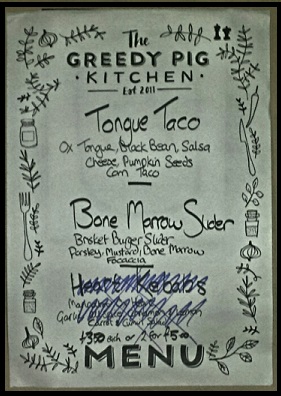 The
GREEDY PIG
· KITCHEN ·
Est 2011
Tongue Taco
Ox Tongue, Black Bean, Salsa
Cheese, Pumpkin Seeds
Corn Taco
Bone Marrow Slider
Brisket Burger Slider
Parsley, Mustard, Bone Marrow
Focaccia
Heart Kebabs
£350 each or 2 for £500
MENU